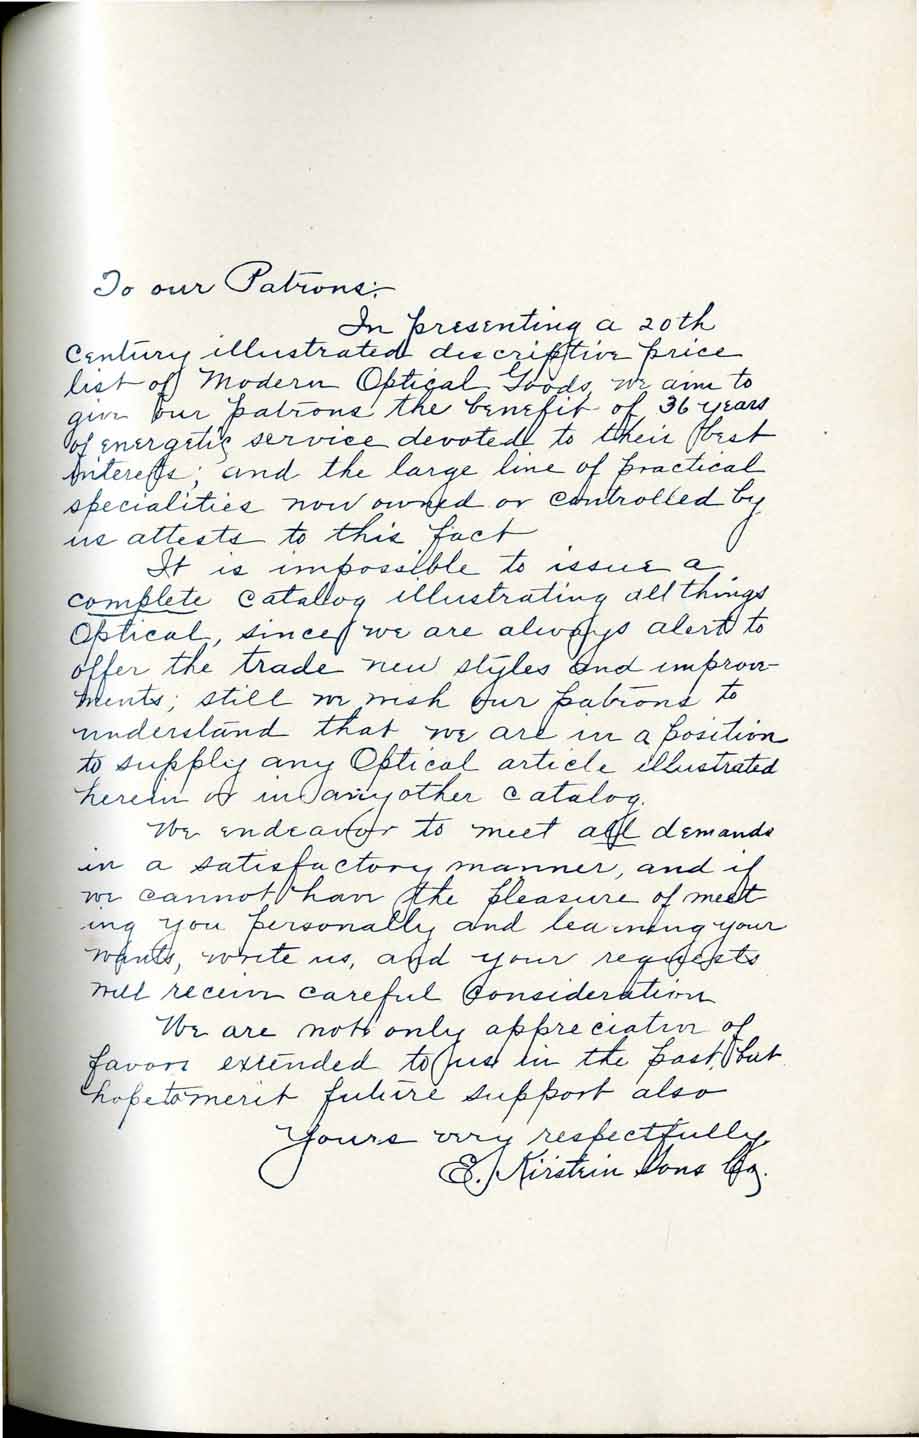 To our Patrons:-
In presenting a 20th
Century illustrated descriptive price
list of Modern Optical Goods, we aim to
give our patrons the benefit of 36 years
of energetic service devoted to their best
interests; and the large line of practical
specialities now owned or controlled by
us attests to this fact
It is impossible to issue a
complete catalog illustrating all things
Optical, since we are always alert to
offer the trade new styles and improve-
ments; still we wish our patrons to
understand that we are in a position
to supply any Optical article illustrated
herein or in any other catalog.
We endeavor to meet all demands
in a satisfactory manner, and if
we cannot have the pleasure of meet
ing you personally and learning your
wants, write us, and your requests
will receive careful consideration
We are not only appreciative of
favors extended to us in the past, but
hope to merit future support also
Yours very respectfully,
E. Kirstein Sons Co.